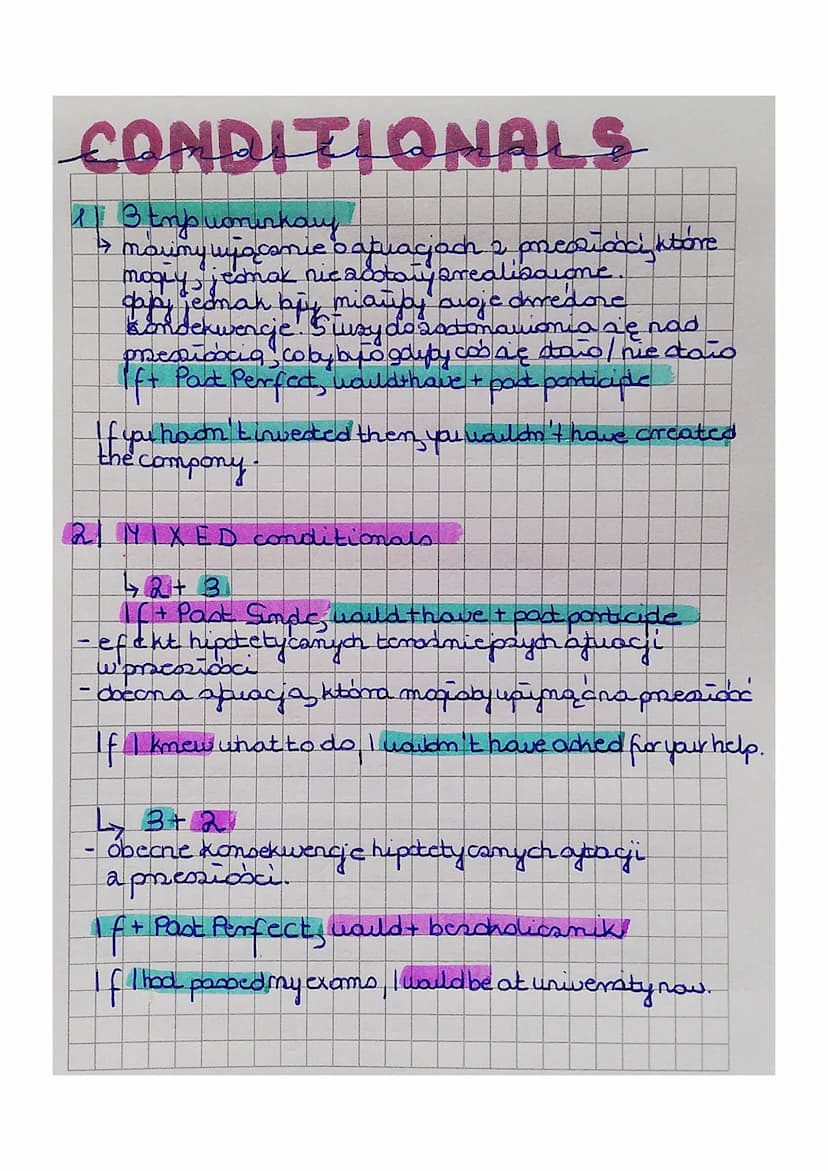 CONDITIONALS
conditionals
1) 3 tryb warunkowy
↳ mówimy wyłącznie o sytuacjach z przeszłości, które
mogły, jednak nie zostały zrealizowane.
gdyby jednak były, miałyby swoje określone
konsekwencje. Służy do zastanawiania się nad
przeszłością, co by było gdyby coś się stało / nie stało
If + Past Perfect, would + have + past participle
If you hadn't invested then, you wouldn't have created
the company.
2) MIXED conditionals
↳ 2 + 3
If + Past Simple, would + have + past participle
- efekt hipotetycznych teraźniejszych sytuacji
w przeszłości
- obecna sytuacja, która mogłaby wpłynąć na przeszłość
If I knew what to do, I wouldn't have asked for your help.
↳ 3 + 2
- obecne konsekwencje hipotetycznych sytuacji
z przeszłości.
If + Past Perfect, would + bezokolicznik
If I had passed my exams, I would be at university now.